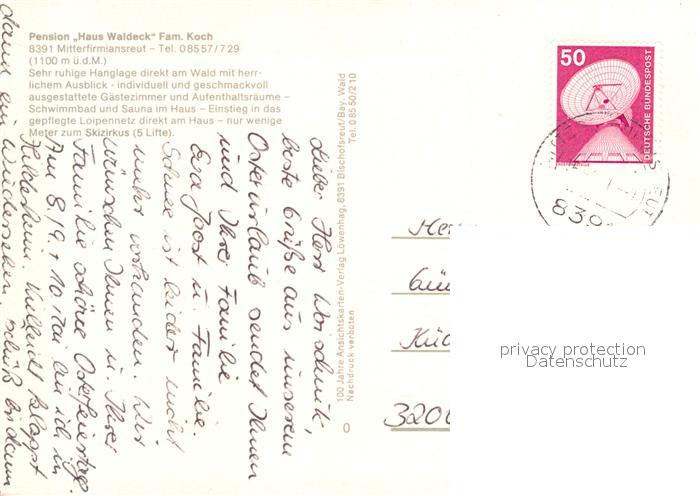 Pension „Haus Waldeck“ Fam. Koch
8391 Mitterfirmiansreut – Tel. 08557/729
(1100 m ü.d.M.)
Sehr ruhige Hanglage direkt am Wald mit herr-
lichem Ausblick - individuell und geschmackvoll
ausgestattete Gästezimmer und Aufenthaltsräume –
Schwimmbad und Sauna im Haus – Einstieg in das
gepflegte Loipennetz direkt am Haus – nur wenige
Meter zum Skizirkus (5 Lifte).
Lieber Herr
beste Grüße aus unserem
Osterurlaub sendet Ihnen
und Ihrer Familie
Eva Joost u. Familie.
Schnee ist leider nicht
mehr vorhanden. Wir
wünschen Ihnen u. Ihrer
Familie schöne Osterfeiertage.
Am 8./9. + 10 Mai bin ich in
Hildesheim. Vielleicht klappt
dann ein Wiedersehen, bis dann
100 Jahre Ansichtskarten-Verlag Löwenhag, 8391 Bischofsreut/Bay. Wald
Tel. 08550/210
Nachdruck verboten
0
50
DEUTSCHE BUNDESPOST
839
Her
Gü
Küc
3200
privacy protection
Datenschutz